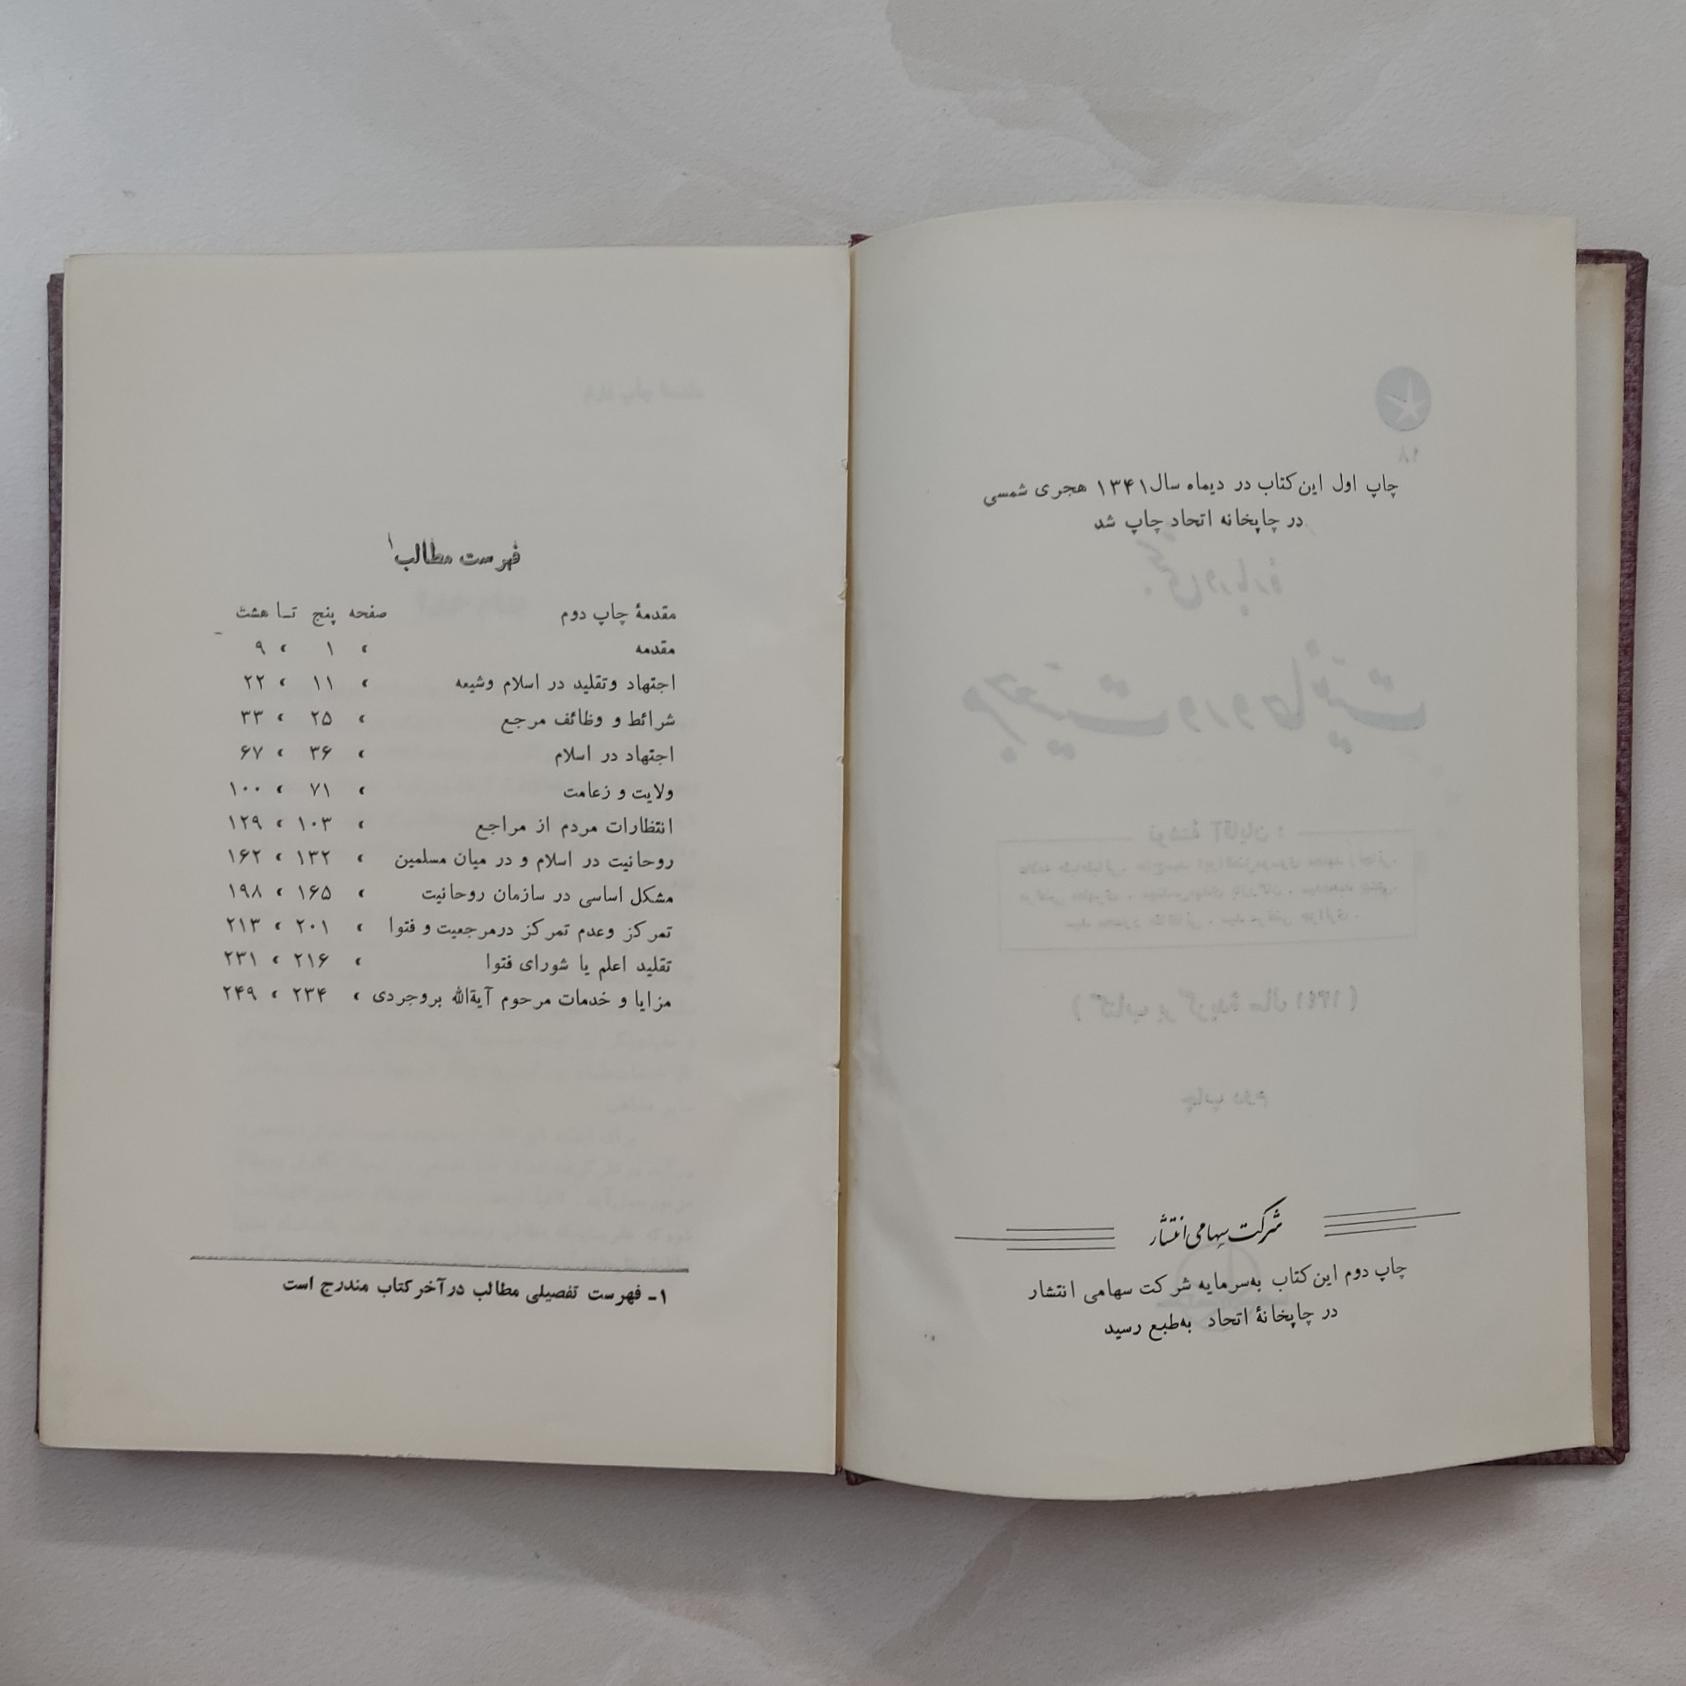 چاپ اول این کتاب در دیماه سال ۱۳۴۱ هجری شمسی
در چاپخانه اتحاد چاپ شد
شرکت سهامی انتشار
چاپ دوم این کتاب به‌سرمایه شرکت سهامی انتشار
در چاپخانهٔ اتحاد به‌طبع رسید
فهرست مطالب۱
مقدمهٔ چاپ دوم صفحه پنج تا هشت
مقدمه » ۱ » ۹
اجتهاد وتقلید در اسلام وشیعه » ۱۱ » ۲۲
شرائط و وظائف مرجع » ۲۵ » ۳۳
اجتهاد در اسلام » ۳۶ » ۶۷
ولایت و زعامت » ۷۱ » ۱۰۰
انتظارات مردم از مراجع » ۱۰۳ » ۱۲۹
روحانیت در اسلام و در میان مسلمین » ۱۳۲ » ۱۶۲
مشکل اساسی در سازمان روحانیت » ۱۶۵ » ۱۹۸
تمرکز وعدم تمرکز درمرجعیت و فتوا » ۲۰۱ » ۲۱۳
تقلید اعلم یا شورای فتوا » ۲۱۶ » ۲۳۱
مزایا و خدمات مرحوم آیةالله بروجردی » ۲۳۴ » ۲۴۹
۱- فهرست تفصیلی مطالب در آخر کتاب مندرج است